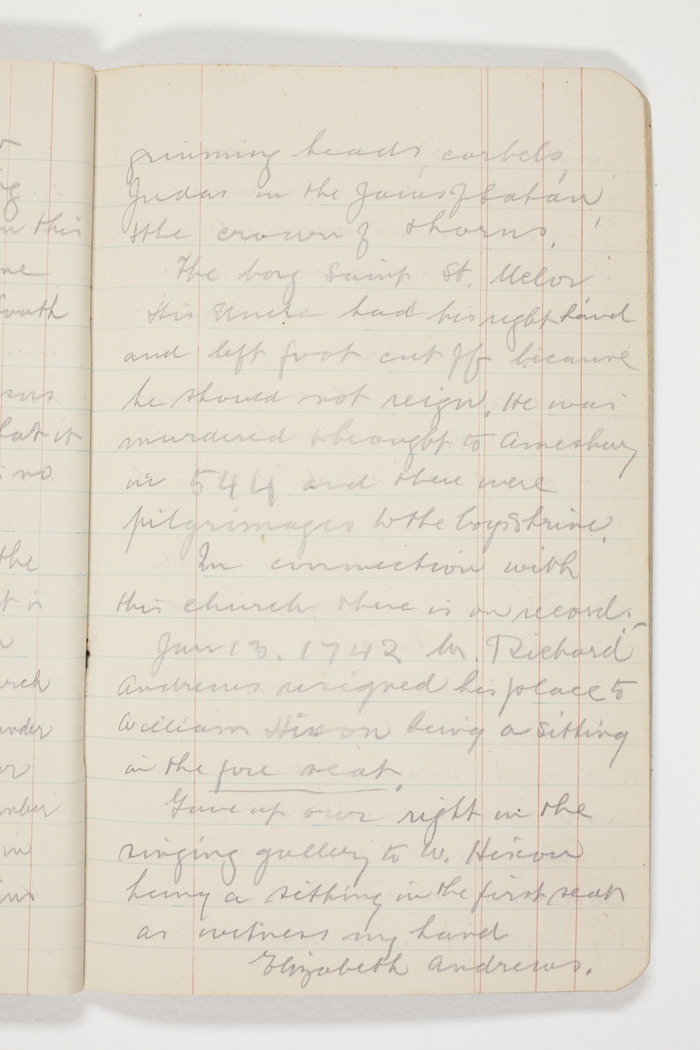 grinning heads, corbels,
Judas in the Jaws of Satan,
& the crown of thorns.
The boy Saint St. Melor
His Uncle had his right hand
and left foot cut off because
he should not reign. He was
murdered & brought to Amesbury
in 544 and there were
pilgrimages to the boys Shrine.
In connection with
this church there is on record:-
Jan 13. 1742 Mr. Richard
Andrews resigned his place to
William Hixon being a sitting
in the fore seat.
Gave up our right in the
singing gallery to W. Hixon
being a sitting in the first seat
as witness my hand
Elizabeth Andrews.